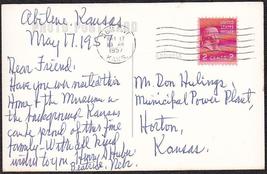 Abilene, Kansas
May 17, 1957
Dear Friend,
Have you ever visited this
Home & the Museum in
the background. Kansas
can be proud of this fine
With all kind
wishes to you Henry
Beatrice, Nebr.
KANS.
1957
2 CENTS 2
Mr. Don Hulings,
Municipal Power Plant,
Horton,
Kansas.